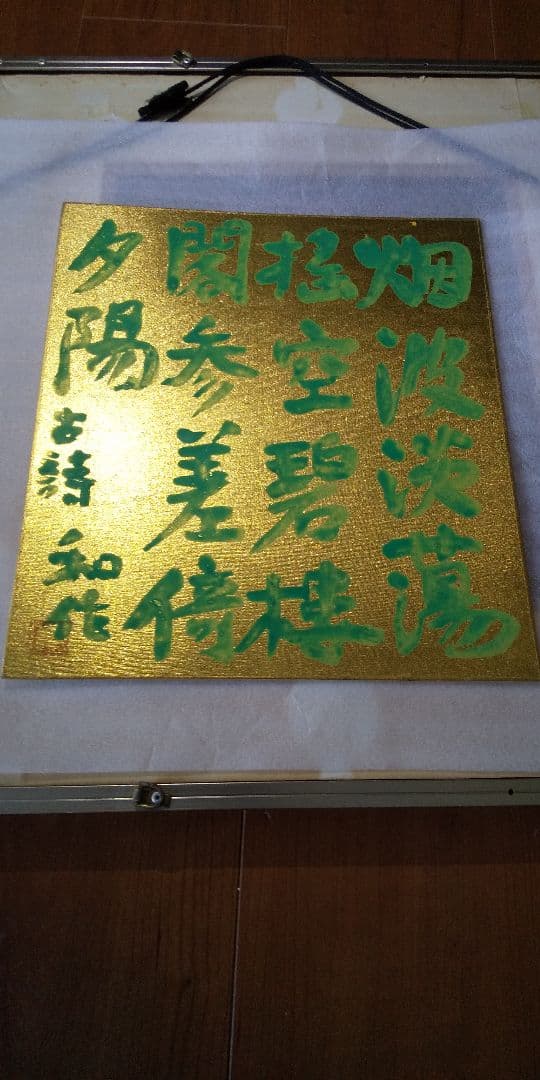 烟波淡蕩
揺空碧樓
閣参差倚
夕陽
古詩 和作